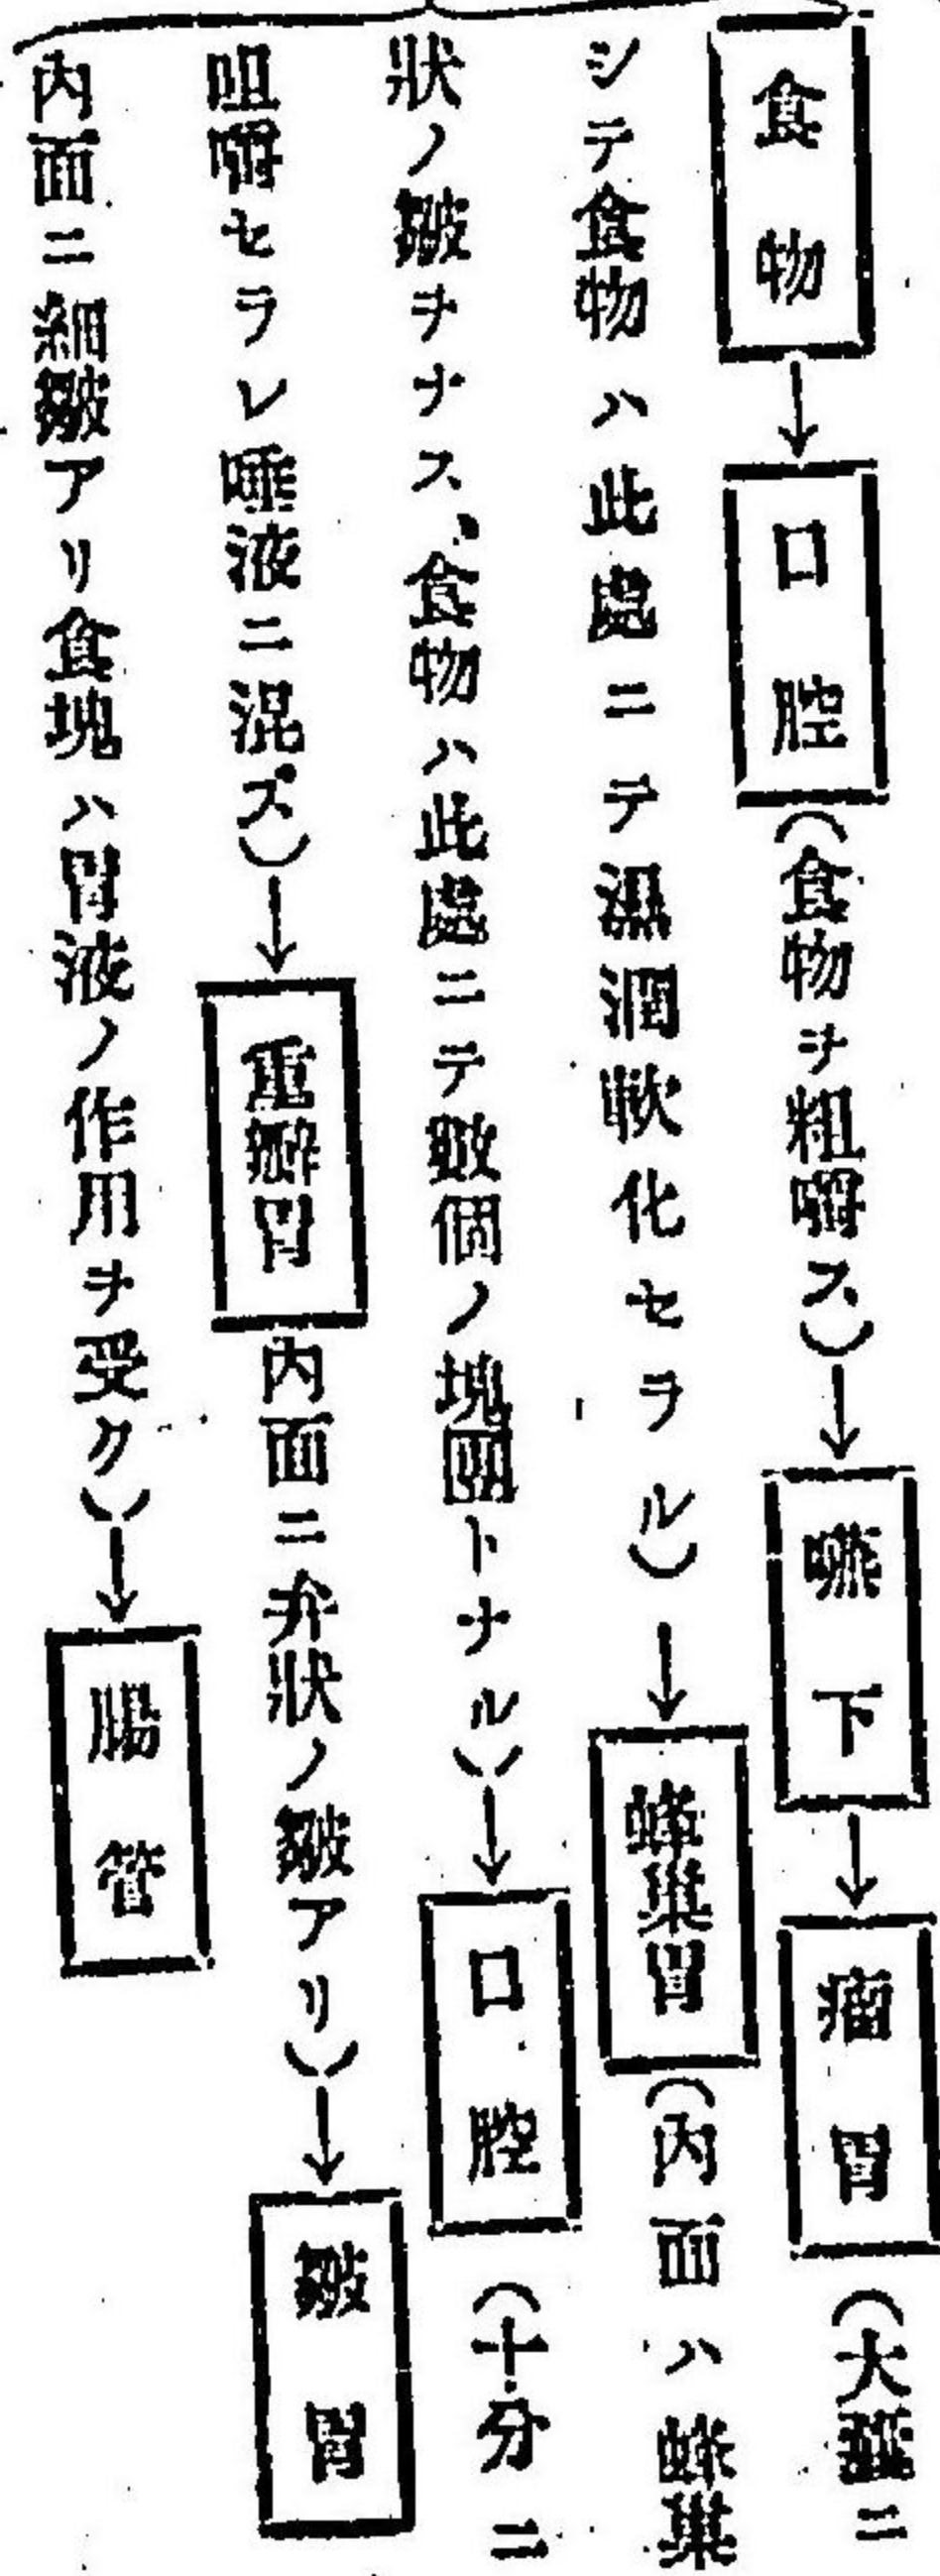 食物→口腔(食物ヲ粗嚼ス)→嚥下→瘤胃(大囊ニ
シテ食物ハ此處ニテ濕潤軟化セラル)→蜂巢胃(內面ハ蜂巢
狀ノ皺ヲナス、食物ハ此處ニテ數個ノ塊團トナル)→口腔(十分ニ
咀嚼セラレ唾液ニ混ズ)→重瓣胃內面ニ弁狀ノ皺アリ)→皺胃
內面ニ細皺アリ食塊ハ胃液ノ作用ヲ受ク)→腸管